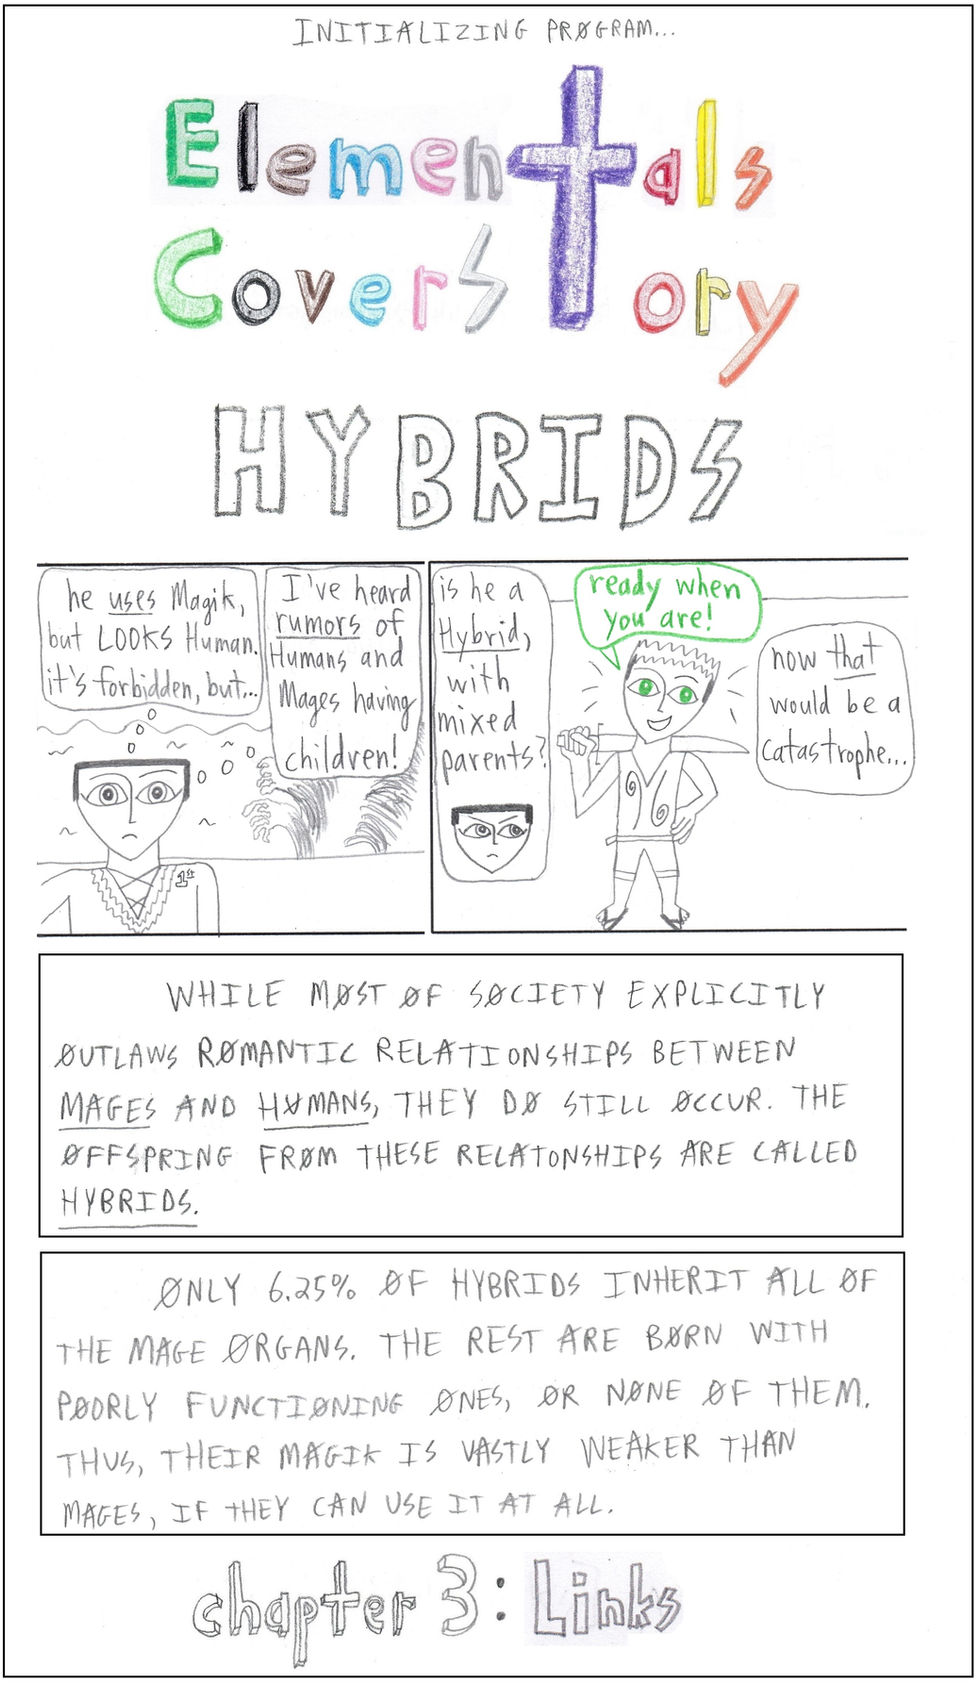 INITIALIZING PROGRAM...
Elementals
CoverStory
HYBRIDS
he uses Magik,
but LOOKS Human.
it's forbidden, but...
I've heard
rumors of
Humans and
Mages having
children!
1st
is he a
Hybrid,
with
mixed
parents?
ready when
you are!
now that
would be a
catastrophe...
WHILE MØST ØF SØCIETY EXPLICITLY
ØUTLAWS RØMANTIC RELATIONSHIPS BETWEEN
MAGES AND HUMANS, THEY DØ STILL ØCCUR. THE
ØFFSPRING FRØM THESE RELATONSHIPS ARE CALLED
HYBRIDS.
ØNLY 6.25% ØF HYBRIDS INHERIT ALL ØF
THE MAGE ØRGANS. THE REST ARE BØRN WITH
PØØRLY FUNCTIØNING ØNES, ØR NØNE ØF THEM.
THUS, THEIR MAGIK IS VASTLY WEAKER THAN
MAGES, IF THEY CAN USE IT AT ALL.
chapter 3: Links